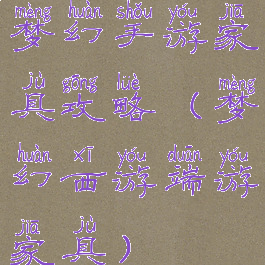 mèng huàn shǒu yóu jiā
梦幻手游家
jù gōng lüè mèng
具攻略（梦
huàn xī yóu duān yóu
幻西游端游
jiā jù
家具）